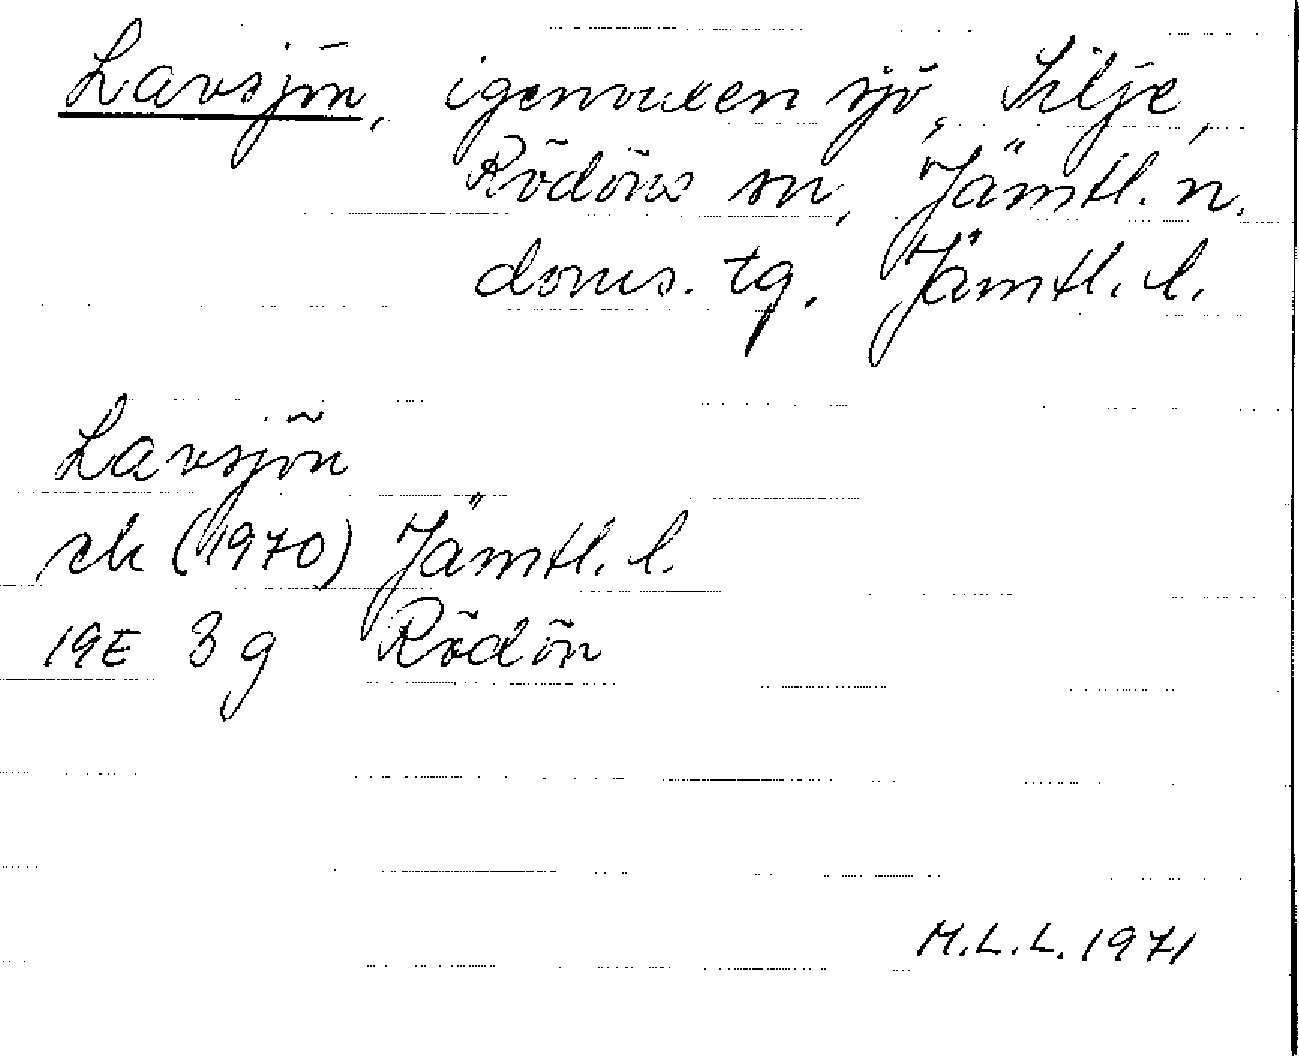 Lavsjön, igenvuxen sjö, Kilje,
Rödöns sn, Jämtl. n.
doms. tg. Jämtl. l.
Lavsjön
ek (1970) Jämtl. l.
19E 3g Rödön
M.L.L. 1971